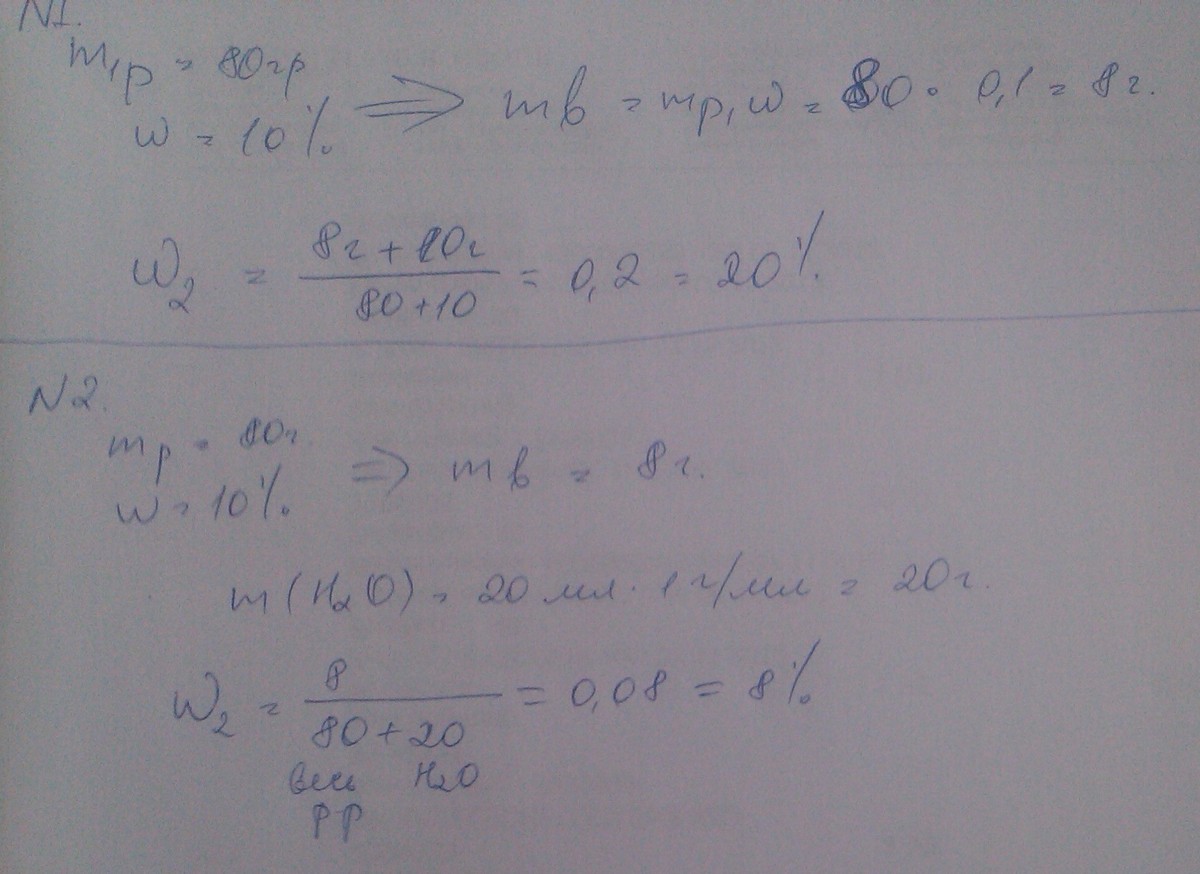 N1.
m₁р = 80гр
w = 10% ⟹ mв = mр₁w = 80 · 0,1 = 8г.
w₂ = (8г + 10г)/(80+10) = 0,2 = 20%
N2.
mр = 80г.
w = 10% ⇒ mв = 8г.
m(H₂O) = 20 мл · 1 г/мл = 20г.
w₂ = 8/(80+20) = 0,08 = 8%
весь H₂O
рр